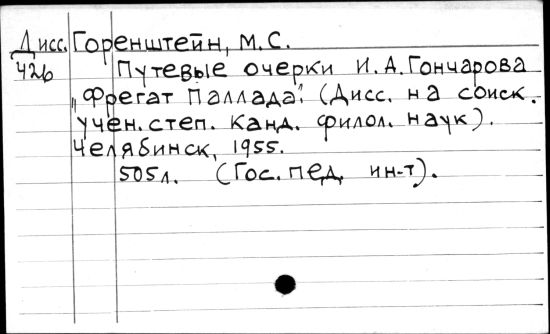 Дисс. Горенштейн, М.С.
426 Путевые очерки И.А.Гончарова
"Фрегат Паллада". (Дисс. на соиск.
учен. степ. канд. филол. наук).
Челябинск, 1955.
505л. (Гос. пед. ин-т).